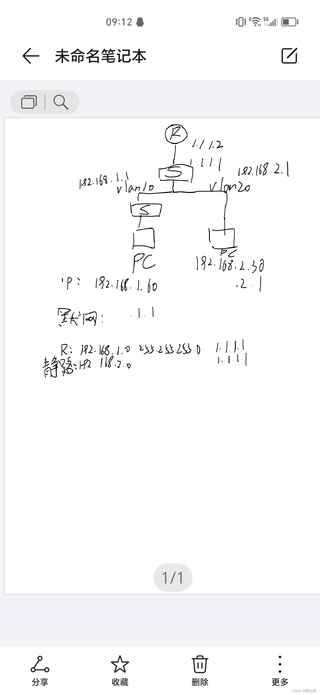 09:12
未命名笔记本
R
1.1.1.2
S
1.1.1.1
192.168.1.1
192.168.2.1
vlan10
vlan20
S
PC
PC
192.168.2.30
IP: 192.168.1.60
.2.1
默认网: .1.1
R: 192.168.1.0 255.255.255.0 1.1.1.1
静路: 192.168.2.0 1.1.1.1
1/1
分享
收藏
删除
更多